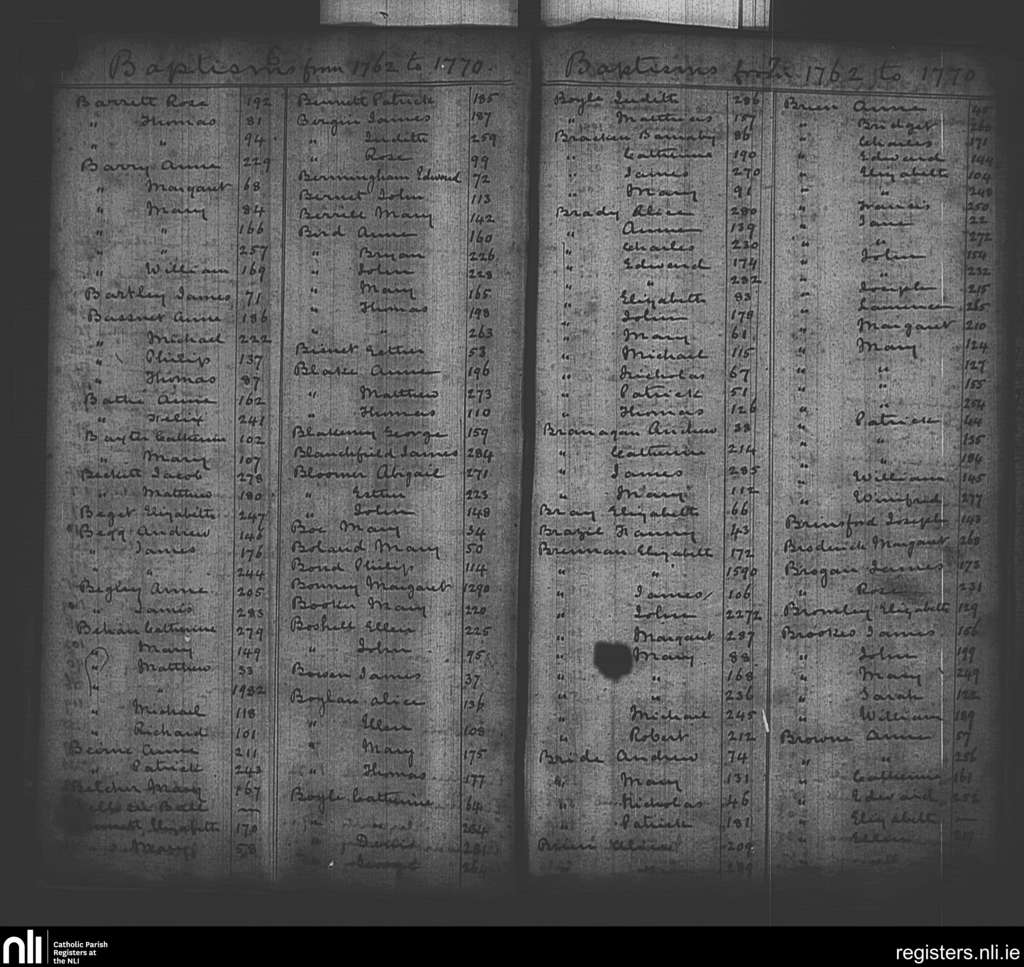 Baptisms from 1762 to 1770.
Barrett Rose 192
" Thomas 81
" " 94
Barry Anne 229
" Margaret 68
" Mary 84
" " 166
" " 257
" William 169
Bartley James 71
Bassnet Anne 186
" Michael 222
" Philip 137
" Thomas 87
Bathe Anne 162
" Felix 241
Baxter Catherine 102
" Mary 107
Beckett Jacob 278
" Matthew 180
Beget Elizabeth 247
Begg Andrew 146
" James 176
" " 244
Begley Anne 205
" James 283
Behan Catherine 279
" Mary 149
" Matthew 33
" " 1982
" Michael 118
" Richard 101
Beirne Anne 211
" Patrick 243
Belcher Mary 167
Elizabeth 170
" Mary 58
Bennett Patrick 185
Bergin James 187
" Judith 259
" Rose 99
Bermingham Edward 72
Bernet John 113
Berrill Mary 142
Bird Anne 160
" Bryan 226
" John 228
" Mary 165
" Thomas 198
" " 263
Bisnet Esther 53
Blake Anne 196
" Matthew 273
" Thomas 110
Blakeney George 159
Blanchfield James 284
Bloomer Abigail 271
" Esther 223
" John 148
Boe Mary 34
Boland Mary 50
Bond Philip 114
Bonney Margaret 1290
Booker Mary 220
Boshell Ellen 225
" John 95
Bowen James 37
Boylan Alice 136
" Ellen 108
" Mary 175
" Thomas 177
Boyle Catherine 64
" 264
" 281
" George 264
Baptisms from 1762 to 1770
Boyle Judith 286
" Matthias 157
Bracken Barnaby 86
" Catherine 190
" James 270
" Mary 91
Brady Alice 280
" Anne 139
" Charles 230
" Edward 174
" " 282
" Elizabeth 83
" John 178
" Mary 61
" Michael 115
" Nicholas 67
" Patrick 51
" Thomas 126
Branagan Andrew 38
" Catherine 214
" James 285
" Mary 112
Bray Elizabeth 66
Brazil Fanny 43
Brennan Elizabeth 172
" " 1590
" James 106
" John 2272
" Margaret 287
" Mary 88
" " 168
" " 236
" Michael 245
" Robert 212
Bride Andrew 74
" Mary 131
" Nicholas 46
" Patrick 181
Brien 209
Brien Anne 45
" Bridget 260
" Charles 171
" Edward 144
" Elizabeth 104
" " 248
" Francis 250
" Jane 22
" " 272
" John 154
" " 232
" Joseph 215
" Laurence 265
" Margaret 210
" Mary 124
" " 127
" " 155
" " 254
" Patrick 44
" " 135
" " 184
" William 145
" Winifred 277
Brinsford Joseph 143
Broderick Margaret 260
Brogan James 173
" Rose 231
Bromley Elizabeth 129
Brookes James 156
" John 199
" Mary 249
" Sarah 122
" William 189
Browne Anne 57
" " 256
" Catherine 161
" Edward 252
" Elizabeth —
" Ellen
nli
Catholic Parish
Registers at
the NLI
registers.nli.ie